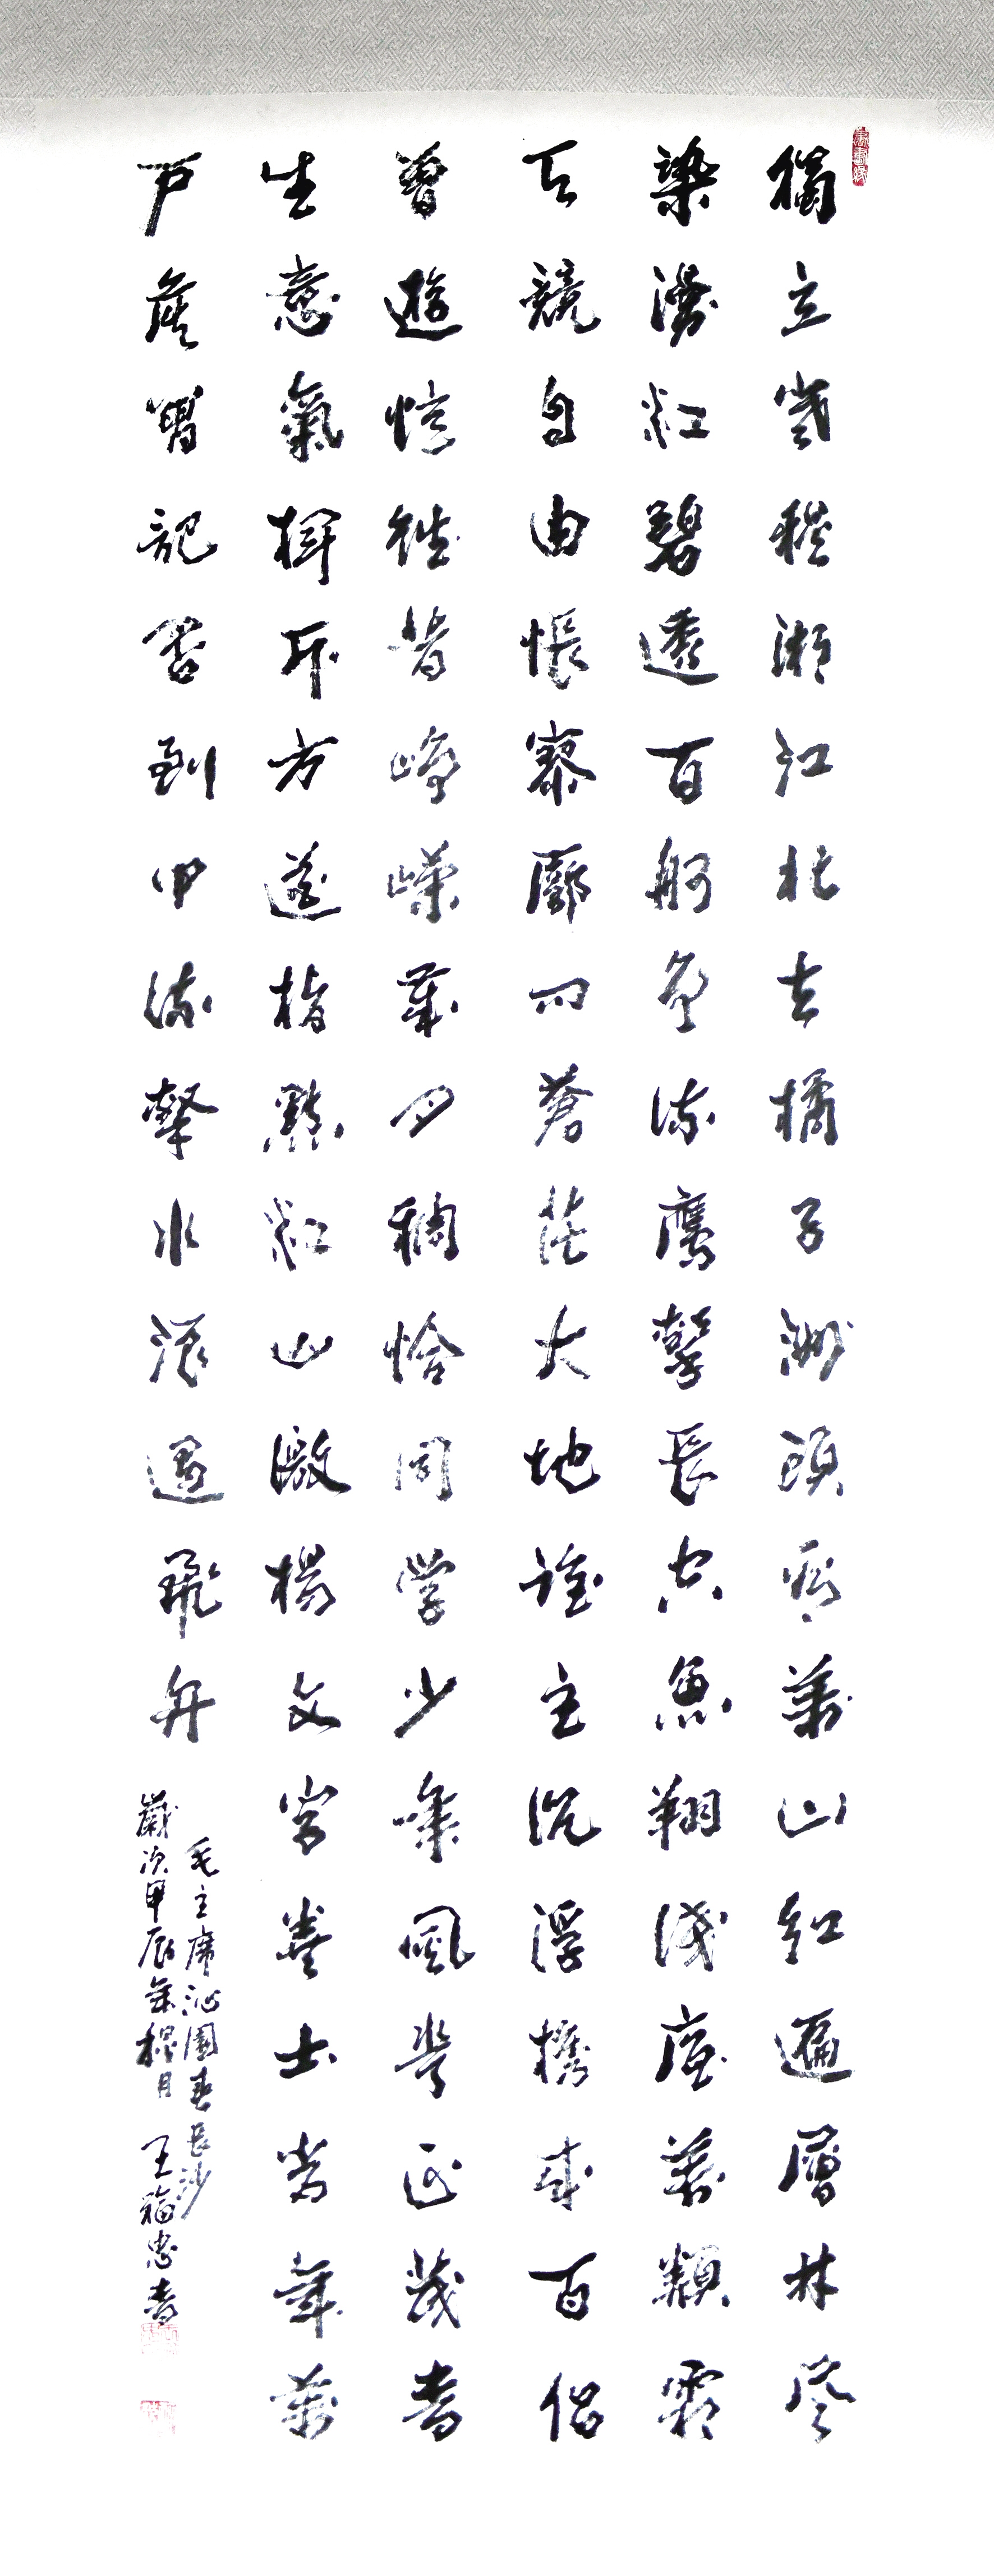 獨立寒秋湘江北去橘子洲頭看萬山紅遍層林盡
染漫江碧透百舸爭流鷹擊長空魚翔淺底萬類霜
天競自由悵寥廓問蒼茫大地誰主沉浮攜來百侶
曾遊憶往昔崢嶸歲月稠恰同學少年風華正茂書
生意氣揮斥方遒指點江山激揚文字糞土當年萬
戶侯曾記否到中流擊水浪遏飛舟
毛主席沁園春長沙
歲次甲辰年月 王福忠書